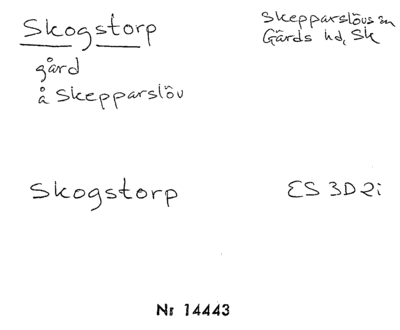 Skogstorp
Skepparslövs sn
Gärds hd, Sk
gård
å Skepparslöv
Skogstorp
ES 3D2i
Nr 14443